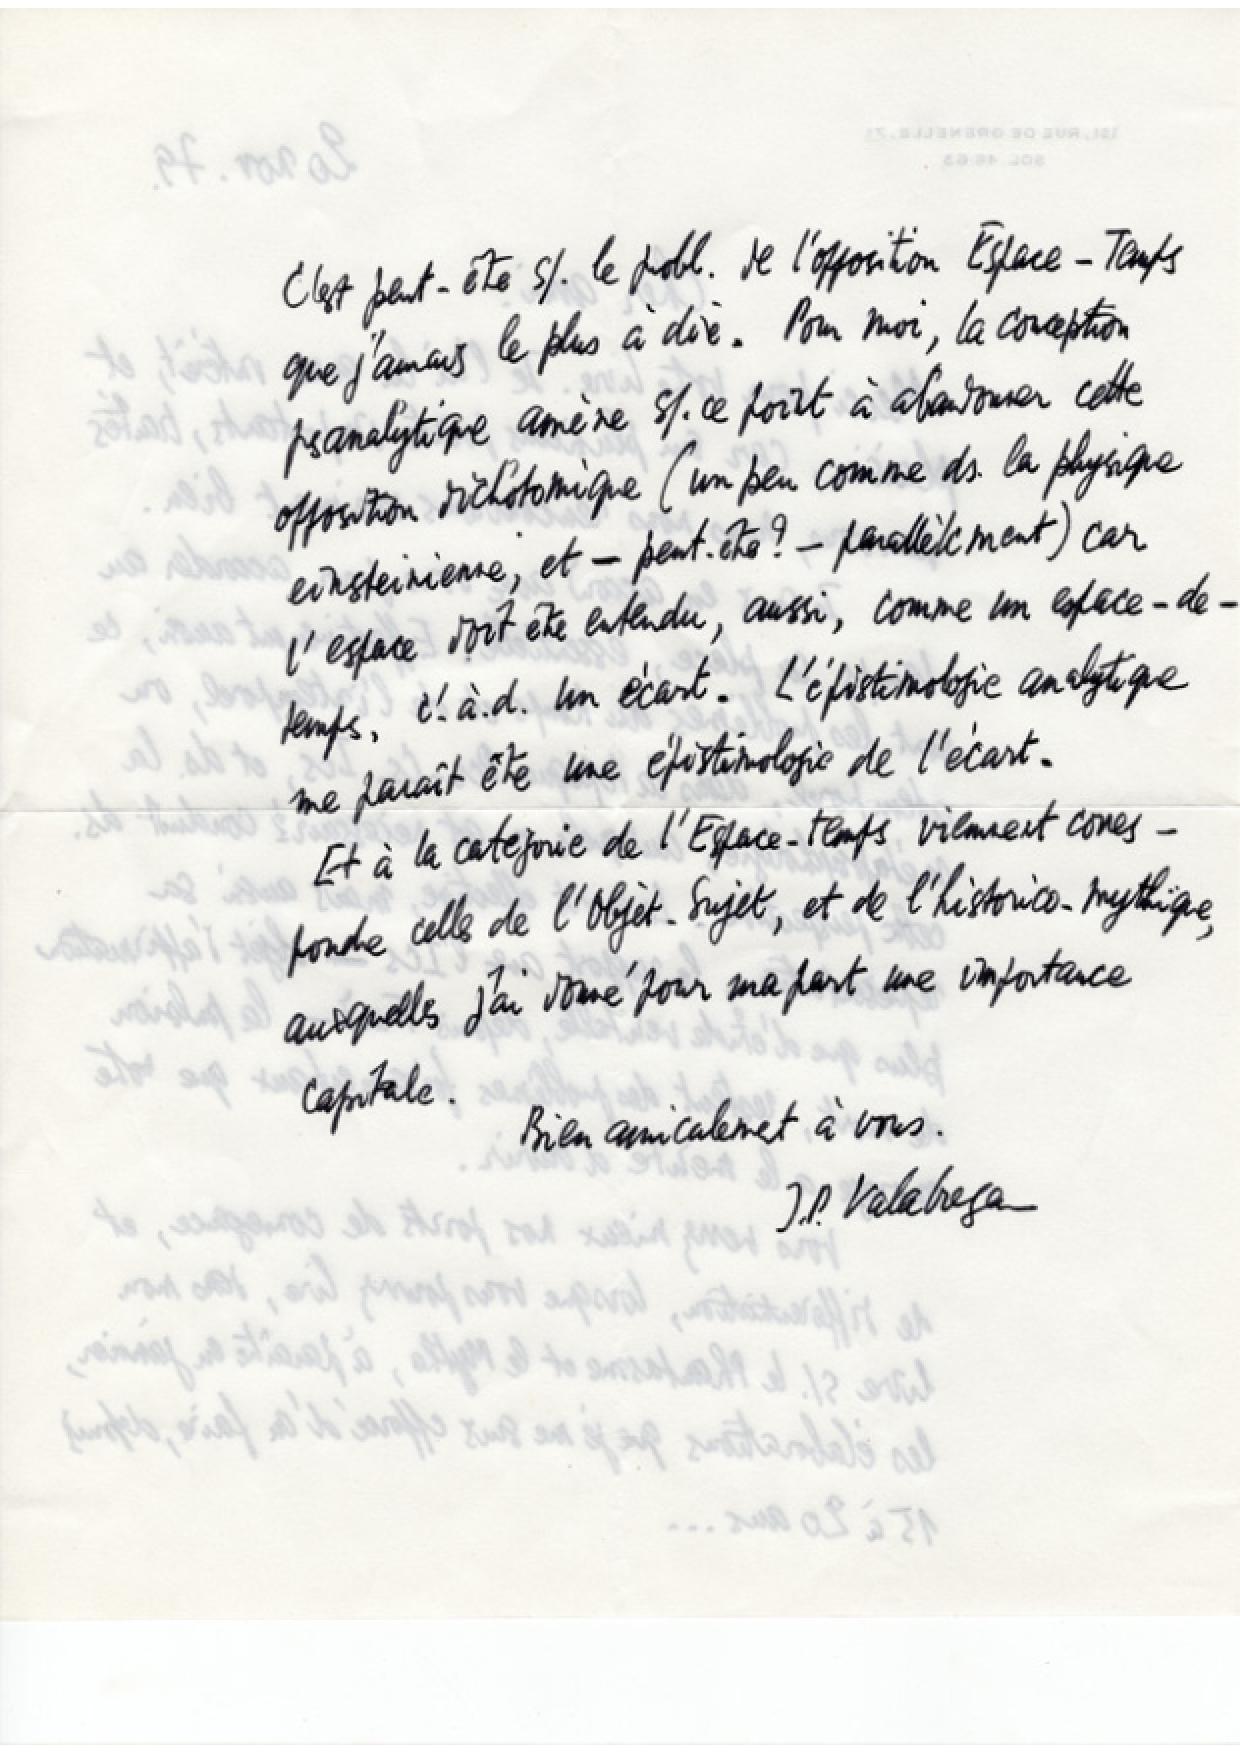 C'est peut-être s/. le probl. de l'opposition Espace-Temps
que j'aurais le plus à dire. Pour moi, la conception
psanalytique amène s/. ce point à abandonner cette
opposition dichotomique (un peu comme ds. la physique
einsteinienne, et – peut-être? – parallèlement) car
l'espace doit être entendu, aussi, comme un espace-de-
temps, c'.à.d. un écart. L'épistémologie analytique
me paraît être une épistémologie de l'écart.
Et à la catégorie de l'Espace-temps viennent corres-
pondre celles de l'Objet-Sujet, et de l'historico-mythique,
auxquelles j'ai donné pour ma part une importance
capitale.
Bien amicalement à vous.
J.P. Valabrega